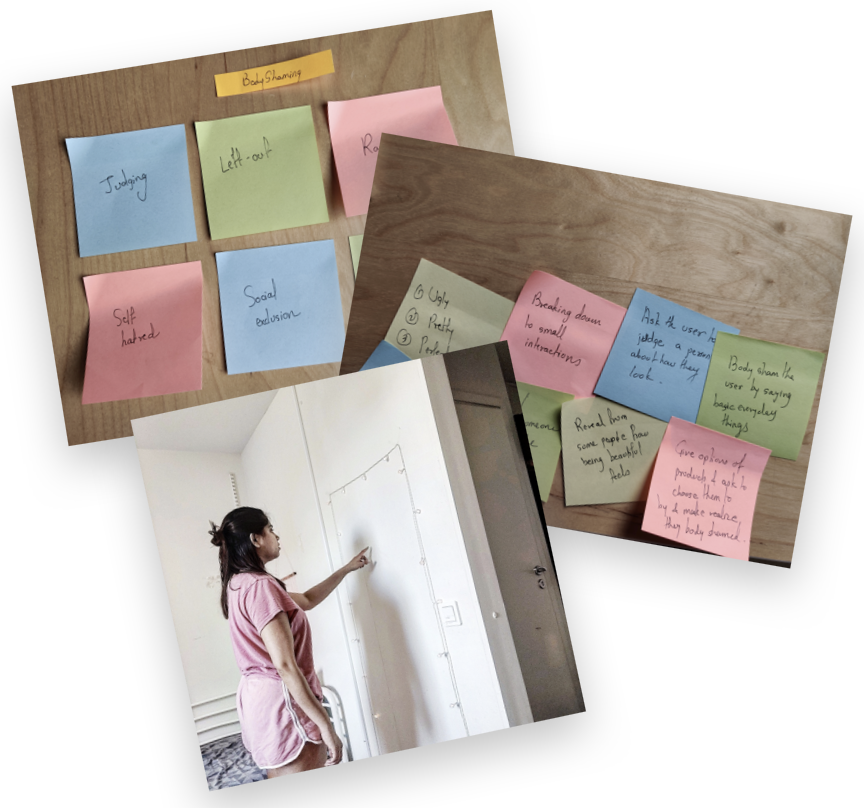 Body Shaming
Judging
Left-out
Self
hatred
Social
exclusion
① Ugly
② Pretty
③
Breaking down
to small
interactions
Ask the user to
judge a person
about how they
look.
Body sham the
user by saying
basic everyday
things
Reveal from
some people how
being beautiful
feels
Give options of
products & ask to
choose them to
by & make realize,
they body shamed.